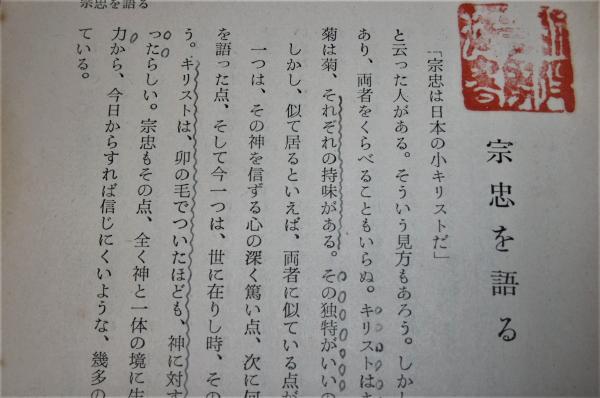 宗忠を語る
宗忠を語る
「宗忠は日本の小キリストだ」
と云った人がある。そういう見方もあろう。しかし
あり、両者をくらべることもいらぬ。キリストは
菊は菊、それぞれの持味がある。その独特がいいの
しかし、似て居るといえば、両者に似ている点が
一つは、その神を信ずる心の深く篤い点、次に何
を語った点、そして今一つは、世に在りし時、その
う。キリストは、卯の毛でついたほども、神に対す
ったらしい。宗忠もその点、全く神と一体の境に生
力から、今日からすれば信じにくいような、幾多の
ている。